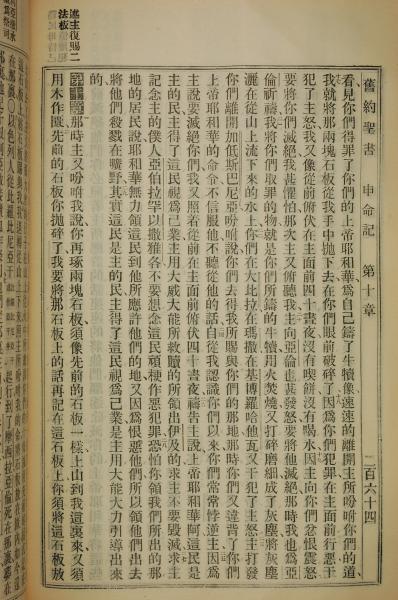 舊約聖書 申命記 第十章 二百六十四
看見你們得罪了你們的上帝耶和華爲自己鑄了牛犢像速速的離開主所吩咐你們的道
我就將那兩塊石板從我手中拋下去在你們眼前破碎了因爲你們犯罪在主面前行惡干
犯了主怒我又像從前俯伏在主面前四十晝夜沒有喫餅沒有喝水因主向你們忿恨震怒
要將你們滅絕我甚懼怕那次主又俯聽我主向亞倫也甚發怒要將他滅絕那時我也爲亞
倫祈禱我將你們取罪的物就是你們所鑄的牛犢用火焚燒又打碎磨細成了灰塵將灰塵
灑在從山上流下來的水上你們在大比拉在瑪撒在基博羅哈他瓦又干犯了主怒主打發
你們離開加低斯巴尼亞吩咐說你們去得我所賜與你們的那地那時你們又違背了你們
上帝耶和華的命令不信服他不聽從他的話自從我認識你們以來你們常常悖逆主因爲
主說要滅絕你們我又照着從前在主面前俯伏四十晝夜禱告主說上帝耶和華阿這民是
主的民主得了這民視爲己業主用大威大能所救贖的所領出伊及的求主不要毀滅求主
記念主的僕人亞伯拉罕以撒雅各不要想念這民頑梗作惡犯罪恐怕你領我們所出的那
地的居民說耶和華無力領這民到他所應許他們的地又因爲恨惡他們所以領他們出來
將他們殺戮在曠野其實這民是主的民主得了這民視爲己業是主用大能大力引導出來
的
第十章那時主又吩咐我說你再琢兩塊石板須像先前的石板一樣上山到我這裏來又須
用木作匱先前的石板你拋碎了我要將那石板上的話再記在這石板上你須將這石板放
述主復賜二
法板